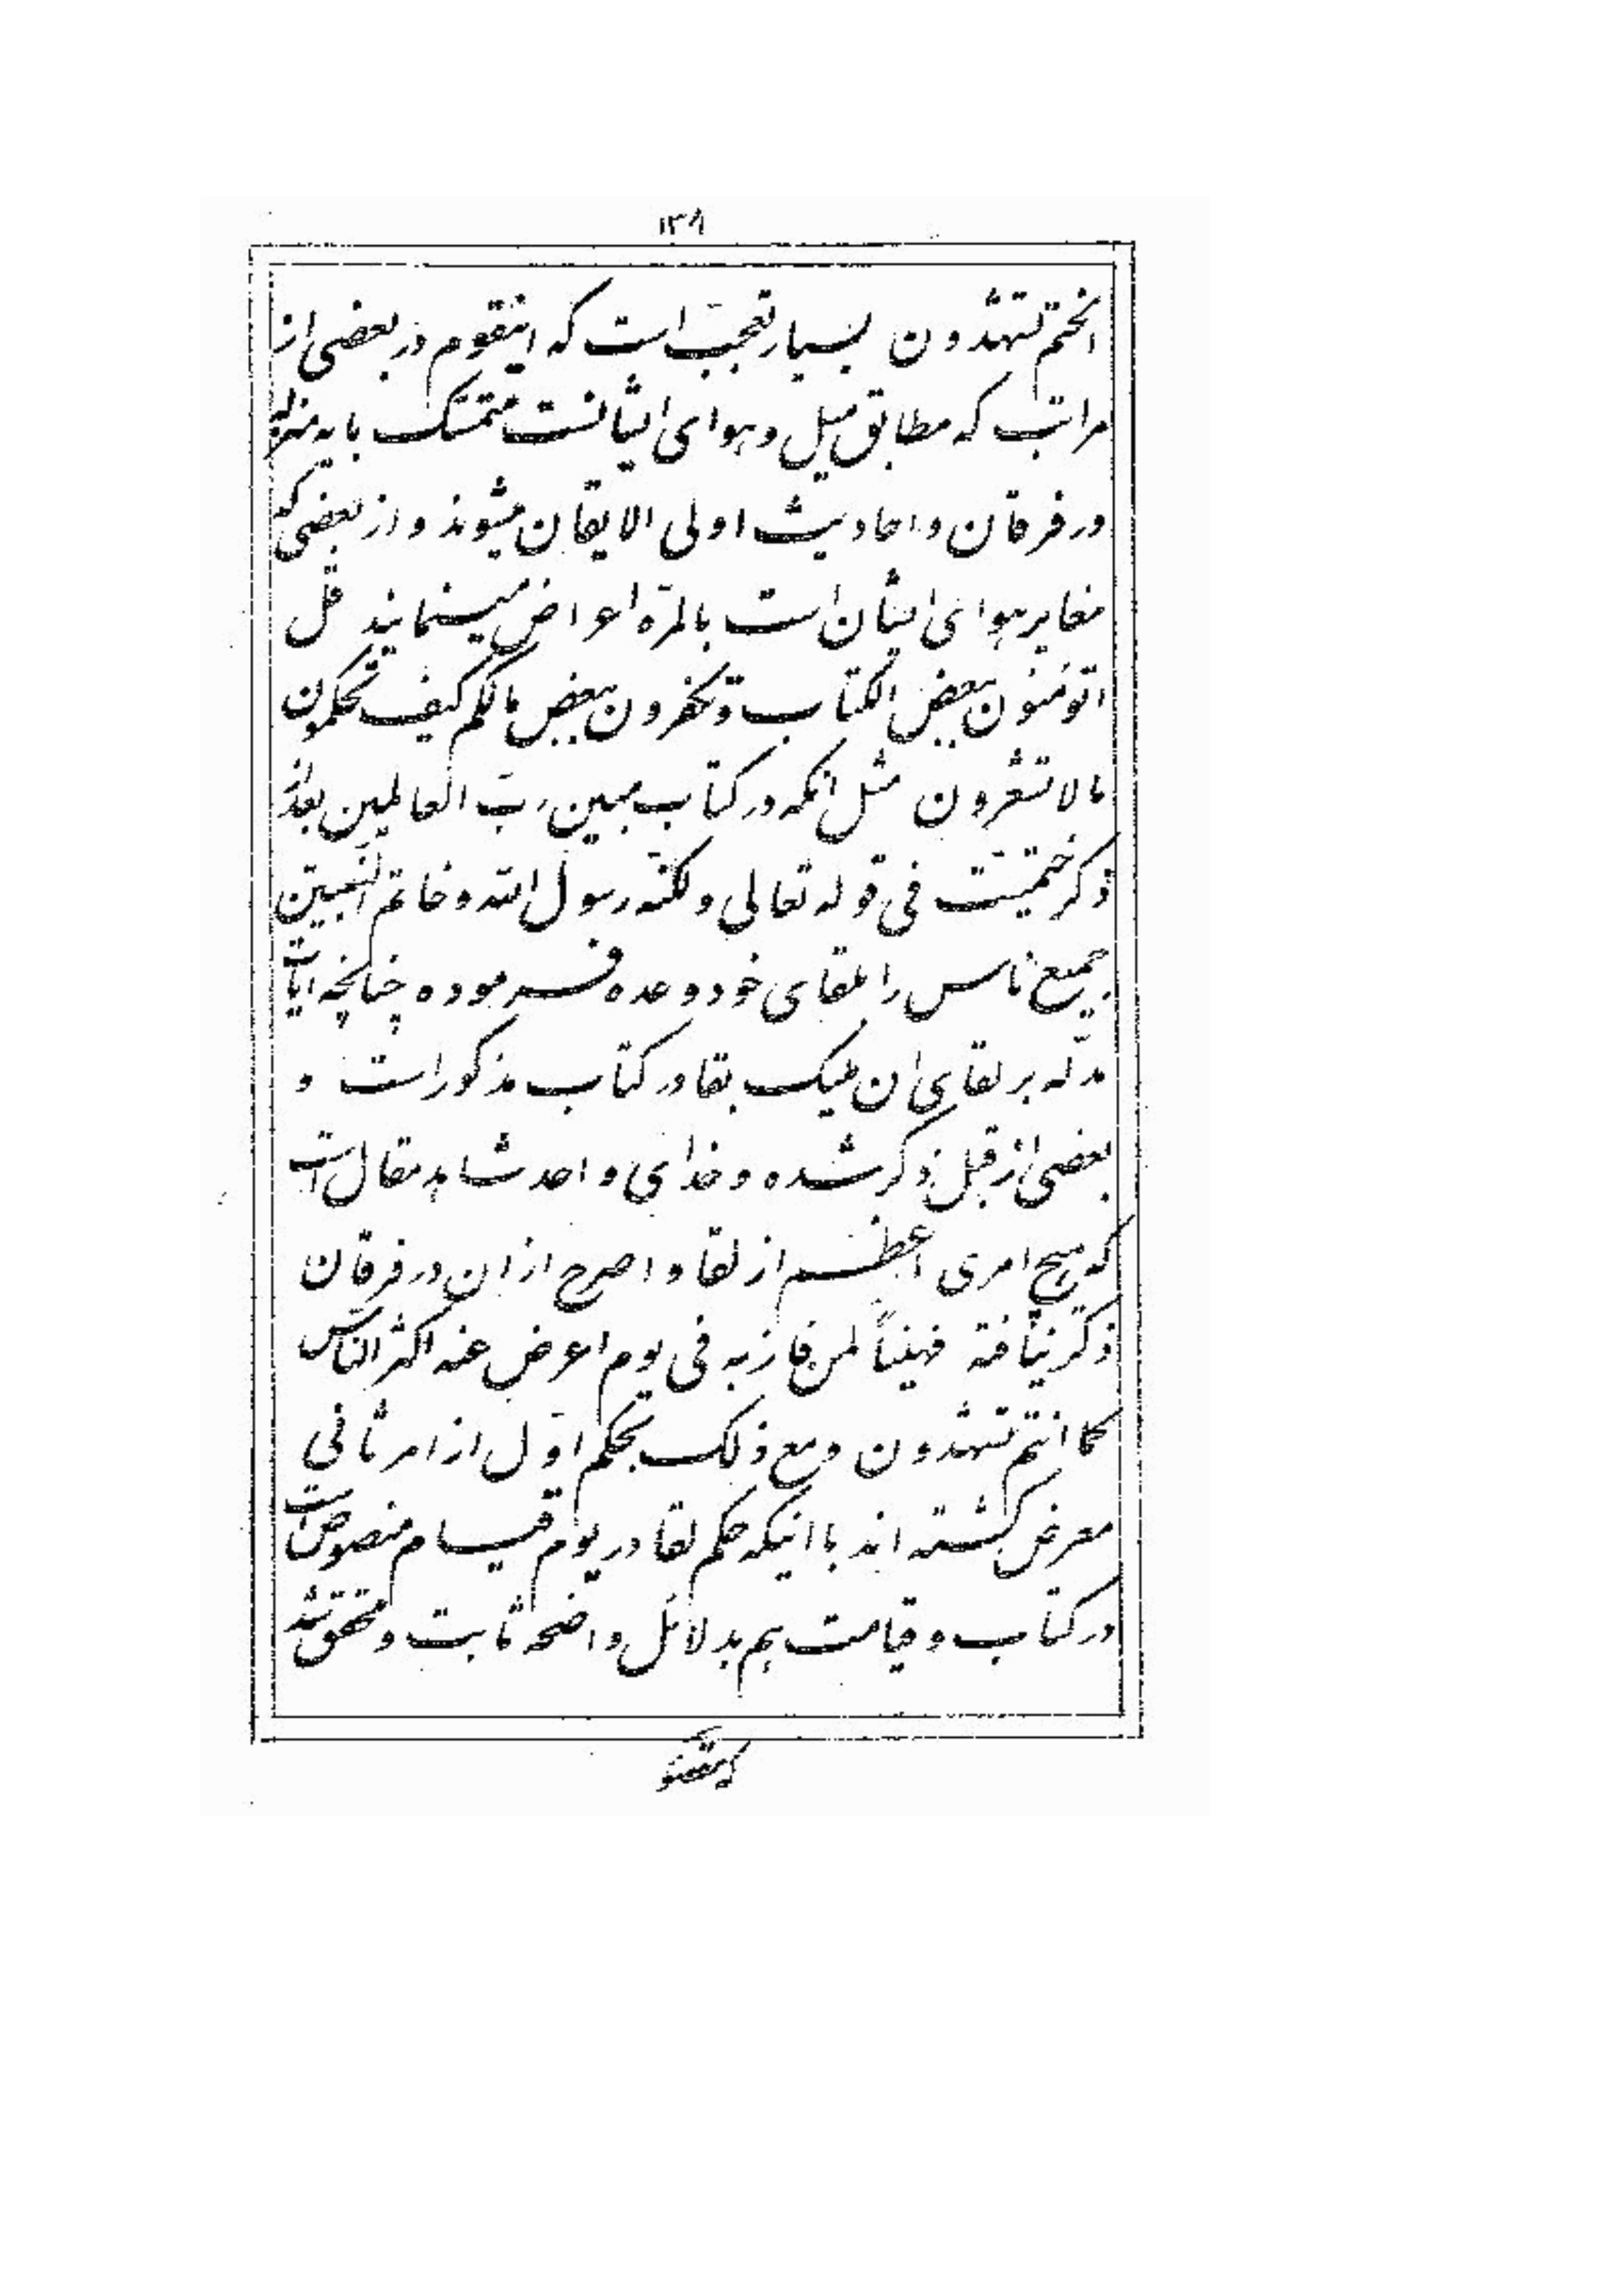 ۱۳۸
الختم تشهدون بسیار تعجّب است که اینقوم در بعضی از
مراتب که مطابق میل و هوای ایشانست متمسّک بایه منزله
در فرقان و احادیث اولی الایقان میشوند و از بعضی که
مغایر هوای ایشان است بالمرّه اعراض مینمایند قل
اتؤمنون ببعض الکتاب و تکفرون ببعض مالکم کیف تحکمون
مالا تشعرون مثل انکه در کتاب مبین ربّ العالمین بعد از
ذکر ختمیّت فی قوله تعالی ولکنّه رسول اللّه و خاتم النّبیین
جمیع ناس را بلقای خود وعده فرموده چنانچه ایات
مدلّه بر لقای ان ملیک بقا در کتاب مذکور است و
بعضی از قبل ذکر شده و خدای واحد شاهد مقال است
که هیچ امری اعظم از لقا و اصرح از ان در فرقان
ذکر نیافته فهنیئاً لمن فاز به فی یوم اعرض عنه اکثر النّاس
کما انتم تشهدون و مع ذلک بحکم اوّل از امر ثانی
معرض گشته اند با اینکه حکم لقا در یوم قیام منصوص است
در کتاب و قیامت هم بدلائل واضحه ثابت و محقق شد